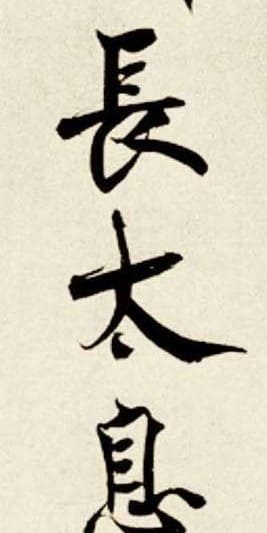 長太息